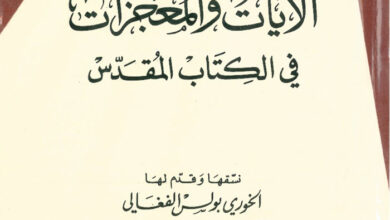 الآيات والمعجزات
في الكِتَاب المُقدّسْ
نسّقهَا وَقدّم لهَا
الخوري بولس الفغالي